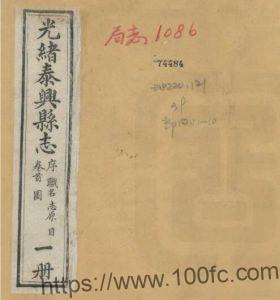 光緒泰興縣志
序 職名 志原 目
卷首 圖
一册
局志1086
74484
https://www.100fc.com